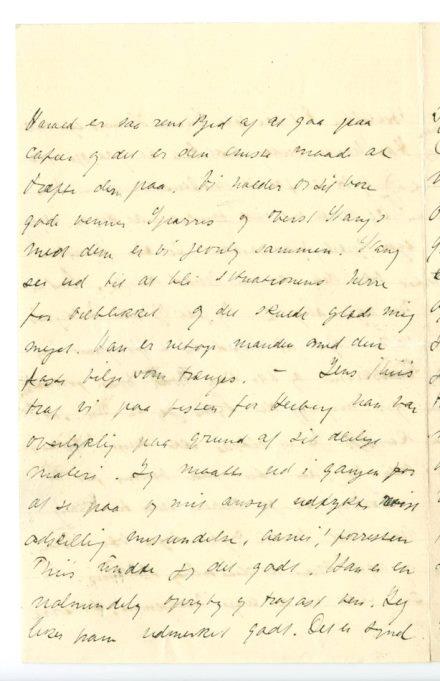 Harald er saa rent kjed af at gaa paa
cafeer og det er den eneste maade at
træffe dem paa. Vi holder os til vore
gode venner Sparres og Oberst Stangs
med dem er vi jevnlig sammen. Stang
ser ud til at bli situationens herre
for øieblikket og det skulde glæde mig
meget. Han er netop manden med den
faste vilje som trænges. – Jens Thiis
traf vi paa festen for Hedberg han var
overlykkelig paa grund af sit deilige
maleri. Jeg maatte ud i gangen for
at se paa og mit ansigt udtrykte vist
adskillig misundelse, aaneí! forresten
Thiis undte jeg det godt. Han er en
ualmindelig og trofast ven. Jeg
liker ham udmerket godt. Det er synd